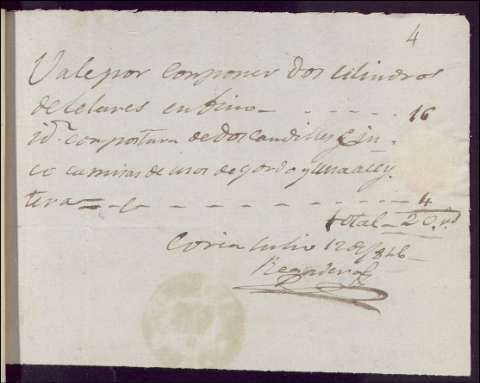 4
Vale por conponer dos cilindros
de telares en fino - - - - - 16
id. conpostura de dos candiles y sin
co camisas de usos de gordo y una azey
tera - - - - - - - - 4
total - 20 rs
Coria Julio 12 de 1846
Regadera